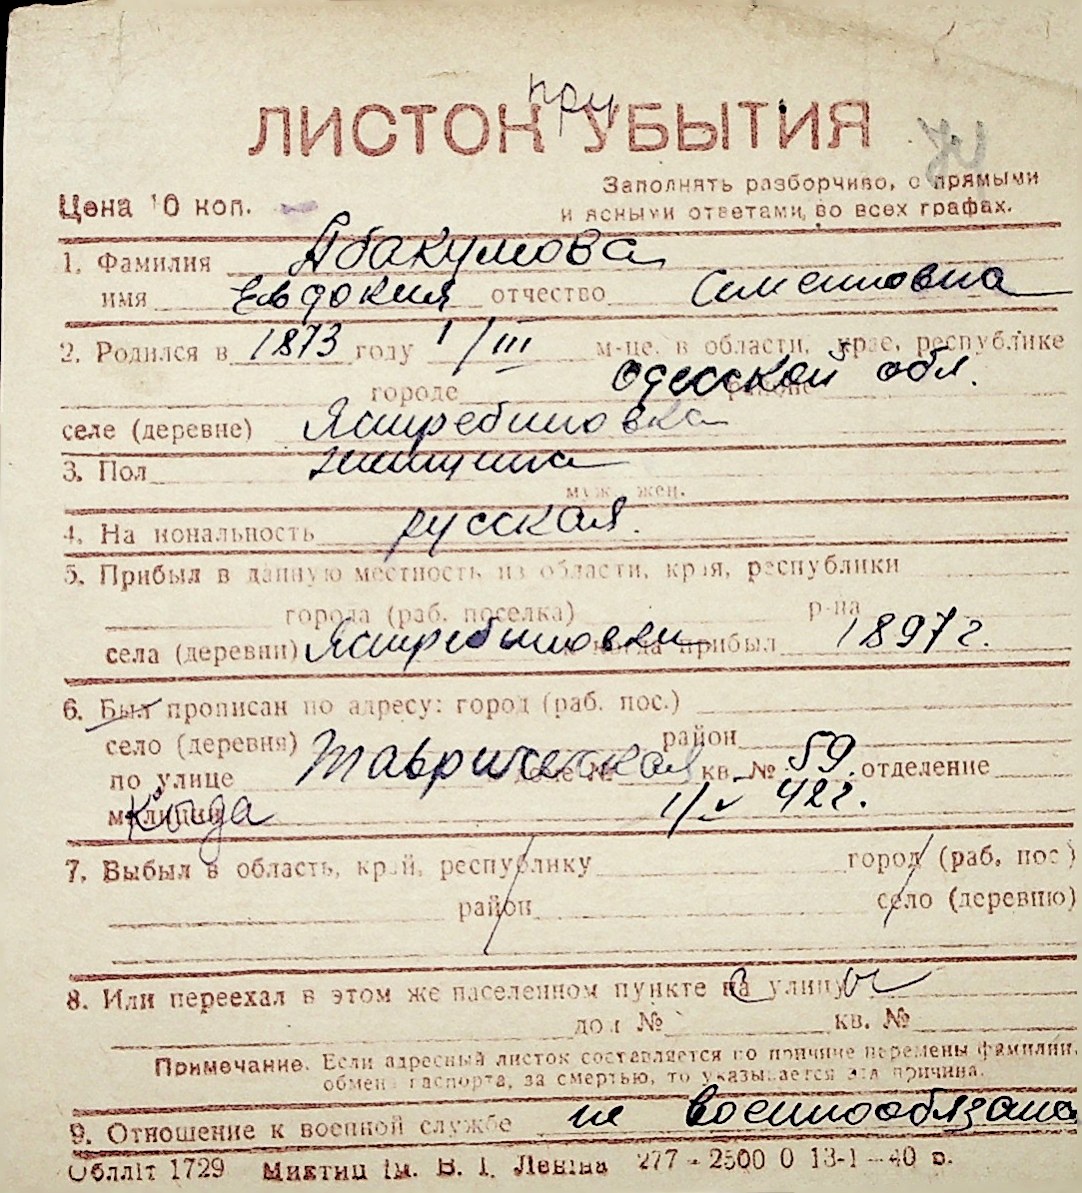 при
ЛИСТОК УБЫТИЯ
Цена 10 коп.
Заполнять разборчиво, с прямыми
и ясными ответами, во всех графах.
1. Фамилия Абакумова
имя Евдокия отчество Семеновна
2. Родился в 1873 году 1/III м-це, в области, крае, республике
городе районе Одесской обл.
селе (деревне) Ястребиновка
3. Пол женщина
муж. жен.
4. Национальность русская.
5. Прибыл в данную местность из области, края, республики
города (раб. поселка) р-на
села (деревни) Ястребиновки и когда прибыл 1897 г.
6. Был прописан по адресу: город (раб. пос.)
село (деревня) район
по улице Таврическая доме № кв. № 59. отделение
милиции Когда 1/V 42 г.
7. Выбыл в область, край, республику город (раб. пос.)
район село (деревню)
8. Или переехал в этом же населенном пункте на улицу
дом № кв. №
Примечание. Если адресный листок составляется по причине перемены фамилии,
обмена паспорта, за смертью, то указывается эта причина.
9. Отношение к военной службе не военнообязана
Обліт 1729 Миктип ім. В. І. Леніна 277-2500 0 13-1-40 р.